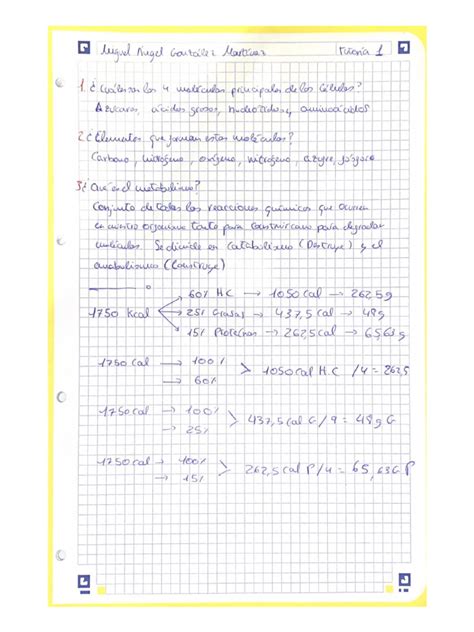 Miguel Ángel González Martínez Tutoría 1
1. ¿Cuáles son los 4 moléculas principales de las células?
Azúcares, ácidos grasos, nucleótidos y aminoácidos
2. ¿Elementos que forman estas moléculas?
Carbono, hidrógeno, oxígeno, nitrógeno, azufre, fósforo
3. ¿Qué es el metabolismo?
Conjunto de todas las reacciones químicas que ocurren
en nuestro organismo tanto para construir como para degradar
moléculas. Se divide en Catabolismo (Destruye) y el
anabolismo (Construye)
60% HC → 1050 cal → 262,5g
1750 Kcal → 25% Grasas → 437,5 cal → 48g
15% Proteínas → 262,5 cal → 65,63g
1750 cal → 100%
→ 60% > 1050 cal H.C /4 = 262,5
1750 cal → 100%
→ 25% > 437,5 cal G / 9 = 48g G
1750 cal → 100%
→ 15% > 262,5 cal P/4 = 65,63G P